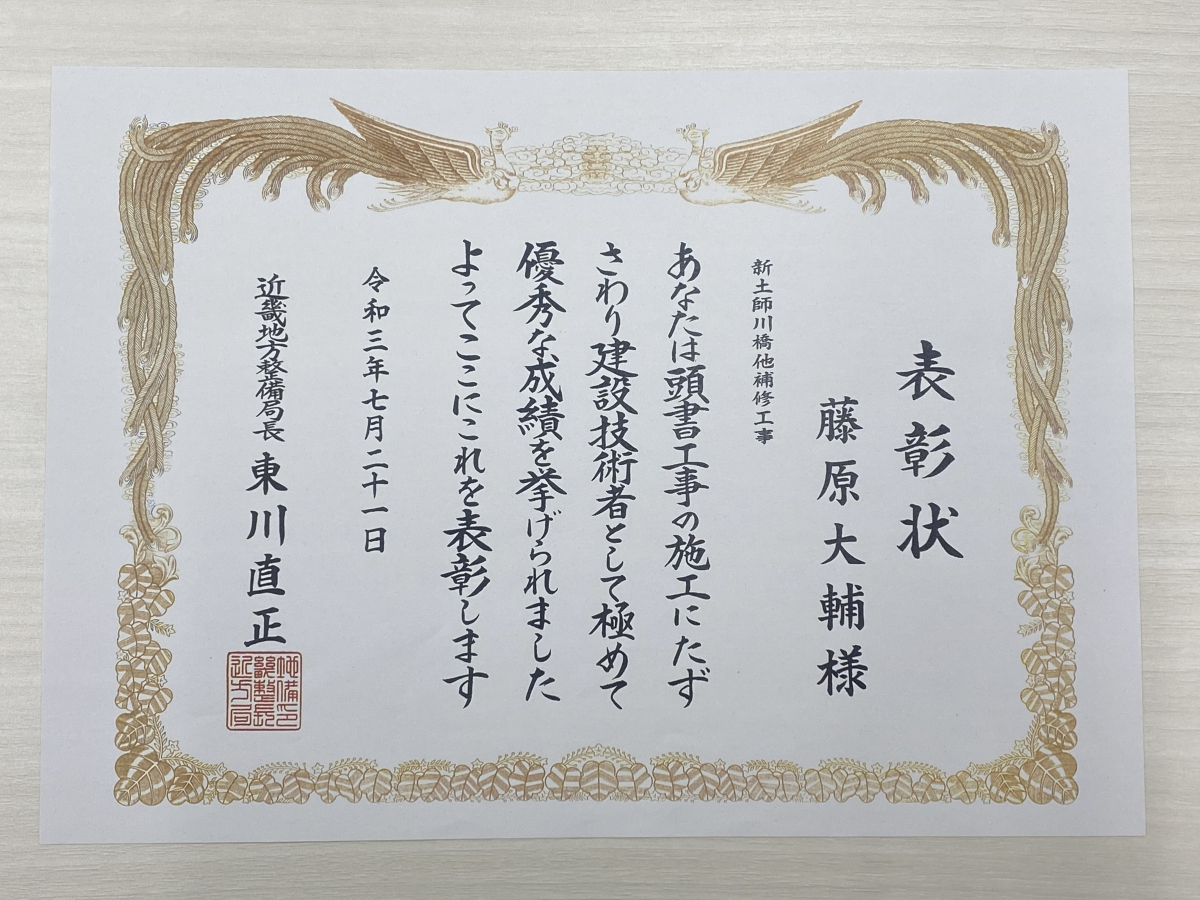 表彰状
藤原大輔様
新土師川橋他補修工事
あなたは頭書工事の施工にたず
さわり建設技術者として極めて
優秀な成績を挙げられました
よってここにこれを表彰します
令和三年七月二十一日
近畿地方整備局長 東川直正